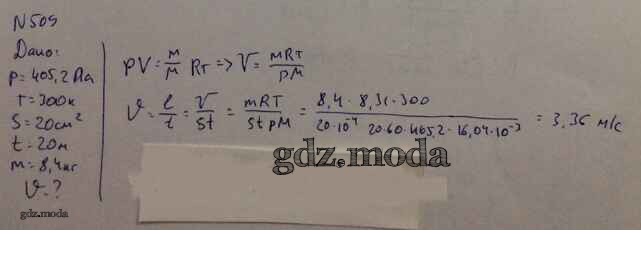 N 509
Дано:
p = 405,2 Па
T = 300К
S = 20см²
t = 20м
m = 8,4кг
υ - ?
gdz.moda
pV = m/M RT => V = mRT/pM
υ = l/t = V/St = mRT/StpM = 8,4 · 8,31 · 300 / 20·10⁻⁴ 20·60·405,2·16,04·10⁻³ = 3,36 м/с
gdz.moda